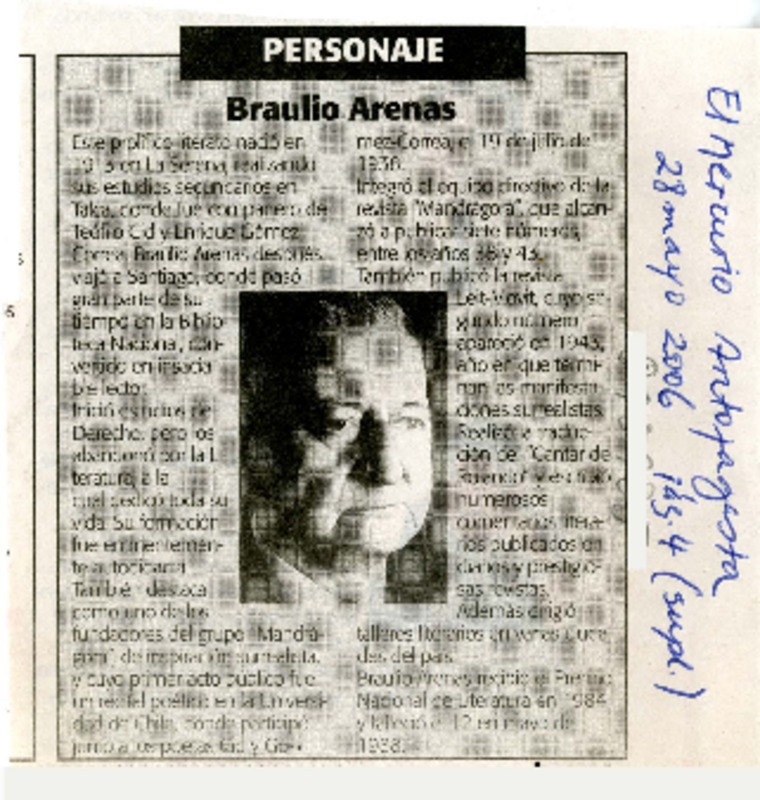 PERSONAJE
Braulio Arenas
Este prolífico literato nació en
1913 en La Serena, realizando
sus estudios secundarios en
Talca, donde fue compañero de
Teófilo Cid y Enrique Gómez
Correa. Braulio Arenas después
viajó a Santiago, donde pasó
gran parte de su
tiempo en la Biblio-
teca Nacional, con-
vertido en insacia-
ble lector.
Inició estudios de
Derecho, pero los
abandonó por la Li-
teratura, a la
cual dedicó toda su
vida. Su formación
fue eminentemen-
te autodidacta.
También destaca
como uno de los
fundadores del grupo "Mandrá-
gora", de inspiración surrealista,
y cuyo primer acto público fue
un recital poético en la Universi-
dad de Chile, donde participó
junto a los poetas Cid y Gó-
mez-Correa, el 19 de julio de
1938.
Integró el equipo directivo de la
revista "Mandrágora", que alcan-
zó a publicar siete números,
entre los años 38 y 43.
También publicó la revista
Leit-Motiv, cuyo se-
gundo número
apareció en 1943,
año en que termi-
nan las manifesta-
ciones surrealistas.
Realizó la traduc-
ción del "Cantar de
Rolando" y escribió
numerosos
comentarios litera-
rios publicados en
diarios y prestigio-
sas revistas.
Además dirigió
talleres literarios en varias ciuda-
des del país.
Braulio Arenas recibió el Premio
Nacional de Literatura en 1984
y falleció el 12 en mayo de
1988.
El Mercurio Antofagasta
28 mayo 2006 pág. 4 (supl.)